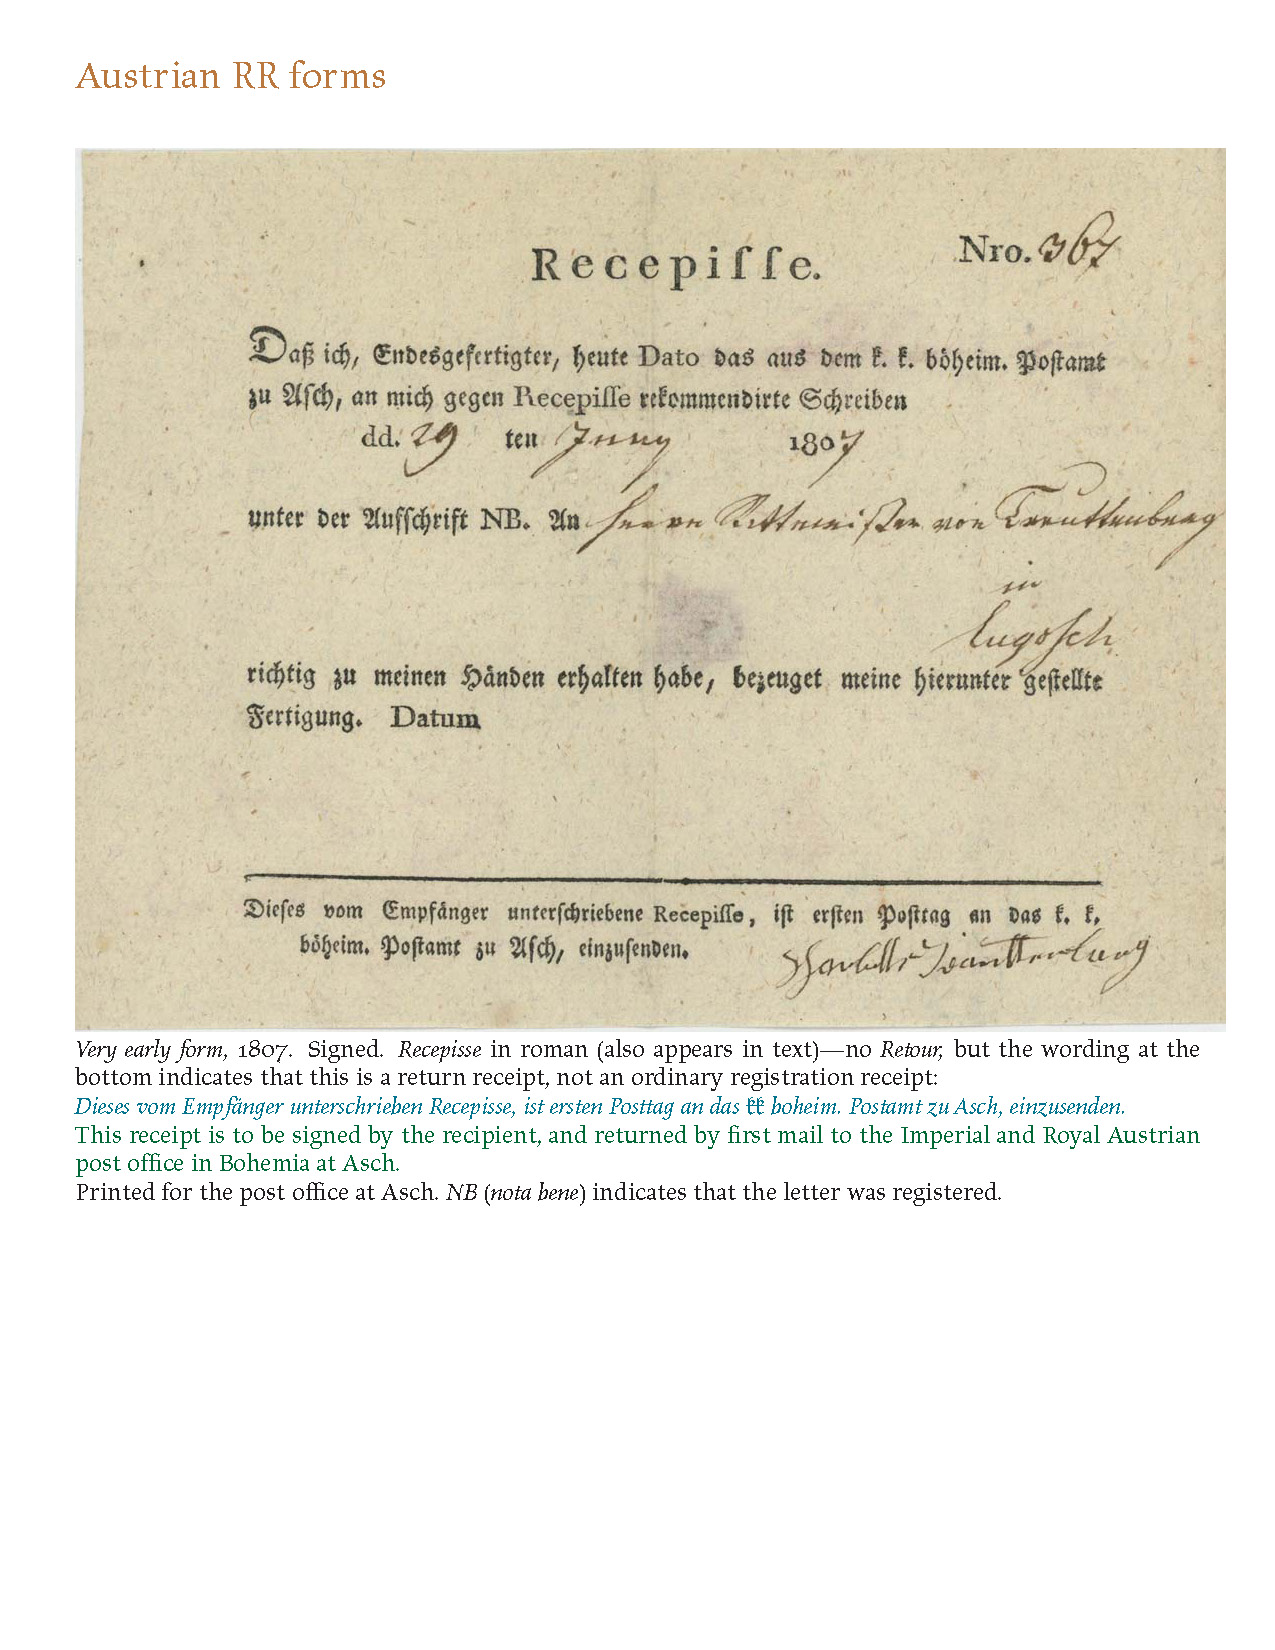 Austrian RR forms
Recepiſſe. Nro. 367
Daß ich, Endesgefertigter, heute Dato das aus dem k. k. böheim. Poſtamt
zu Aſch, an mich gegen Recepiſſe rekommendirte Schreiben
dd. 29 ten Juny 1807
unter der Aufſchrift NB. An Herrn Rittmeister von Treuttenberg
in
Lugosch
richtig zu meinen Händen erhalten habe, bezeuget meine hierunter geſtellte
Fertigung. Datum
Dieſes vom Empfänger unterſchriebene Recepiſſe, iſt erſten Poſttag an das k. k.
böheim. Poſtamt zu Aſch, einzuſenden.
Very early form, 1807. Signed. Recepisse in roman (also appears in text)—no Retour, but the wording at the
bottom indicates that this is a return receipt, not an ordinary registration receipt:
Dieses vom Empfänger unterschrieben Recepisse, ist ersten Posttag an das kk boheim. Postamt zu Asch, einzusenden.
This receipt is to be signed by the recipient, and returned by first mail to the Imperial and Royal Austrian
post office in Bohemia at Asch.
Printed for the post office at Asch. NB (nota bene) indicates that the letter was registered.